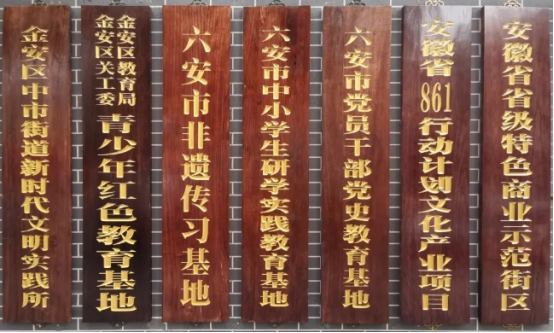 金安区中市街道新时代文明实践所
金安区教育局
金安区关工委
青少年红色教育基地
六安市非遗传习基地
六安市中小学生研学实践教育基地
六安市党员干部党史教育基地
安徽省861行动计划文化产业项目
安徽省省级特色商业示范街区